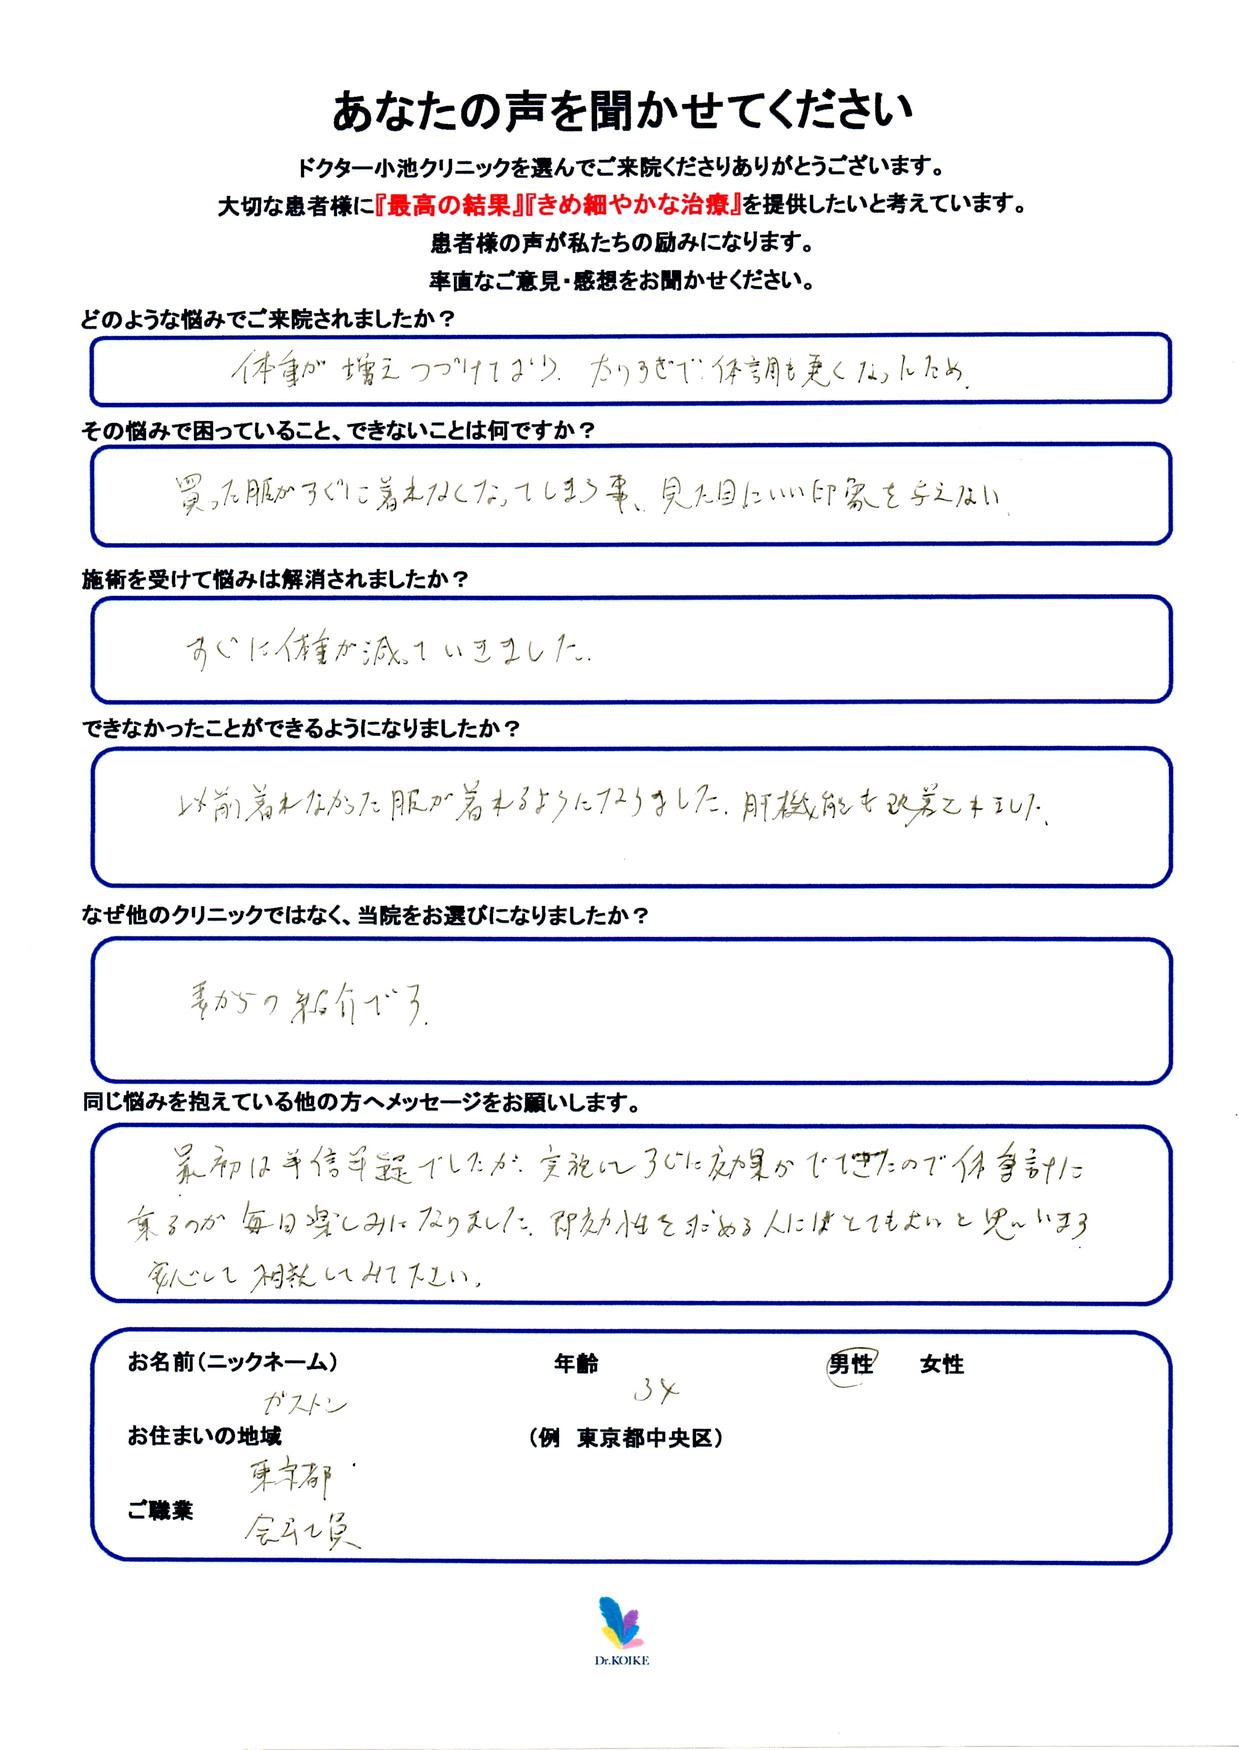 あなたの声を聞かせてください
ドクター小池クリニックを選んでご来院くださりありがとうございます。
大切な患者様に『最高の結果』『きめ細やかな治療』を提供したいと考えています。
患者様の声が私たちの励みになります。
率直なご意見・感想をお聞かせください。
どのような悩みでご来院されましたか？
体重が増えつづけており、太りすぎで体調も悪くなったため。
その悩みで困っていること、できないことは何ですか？
買った服がすぐに着れなくなってしまう事、見た目にいい印象を与えない。
施術を受けて悩みは解消されましたか？
すぐに体重が減っていきました。
できなかったことができるようになりましたか？
以前着れなかった服が着れるようになりました。肝機能も改善されました。
なぜ他のクリニックではなく、当院をお選びになりましたか？
妻からの紹介です。
同じ悩みを抱えている他の方へメッセージをお願いします。
最初は半信半疑でしたが、実施してすぐに効果がでてきたので体重計に
乗るのが毎日楽しみになりました。即効性を求める人にはとてもよいと思います
安心して相談してみて下さい。
お名前（ニックネーム） 年齢 男性 女性
ガストン 34
お住まいの地域 （例 東京都中央区）
東京都
ご職業
会社員
Dr.KOIKE